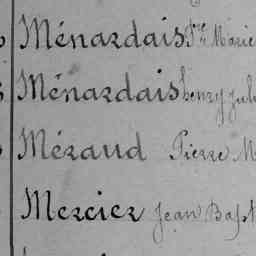 Ménardais Fr. Marie
Ménardais henry Jul
Méraud Pierre M
Mercier Jean Bapt